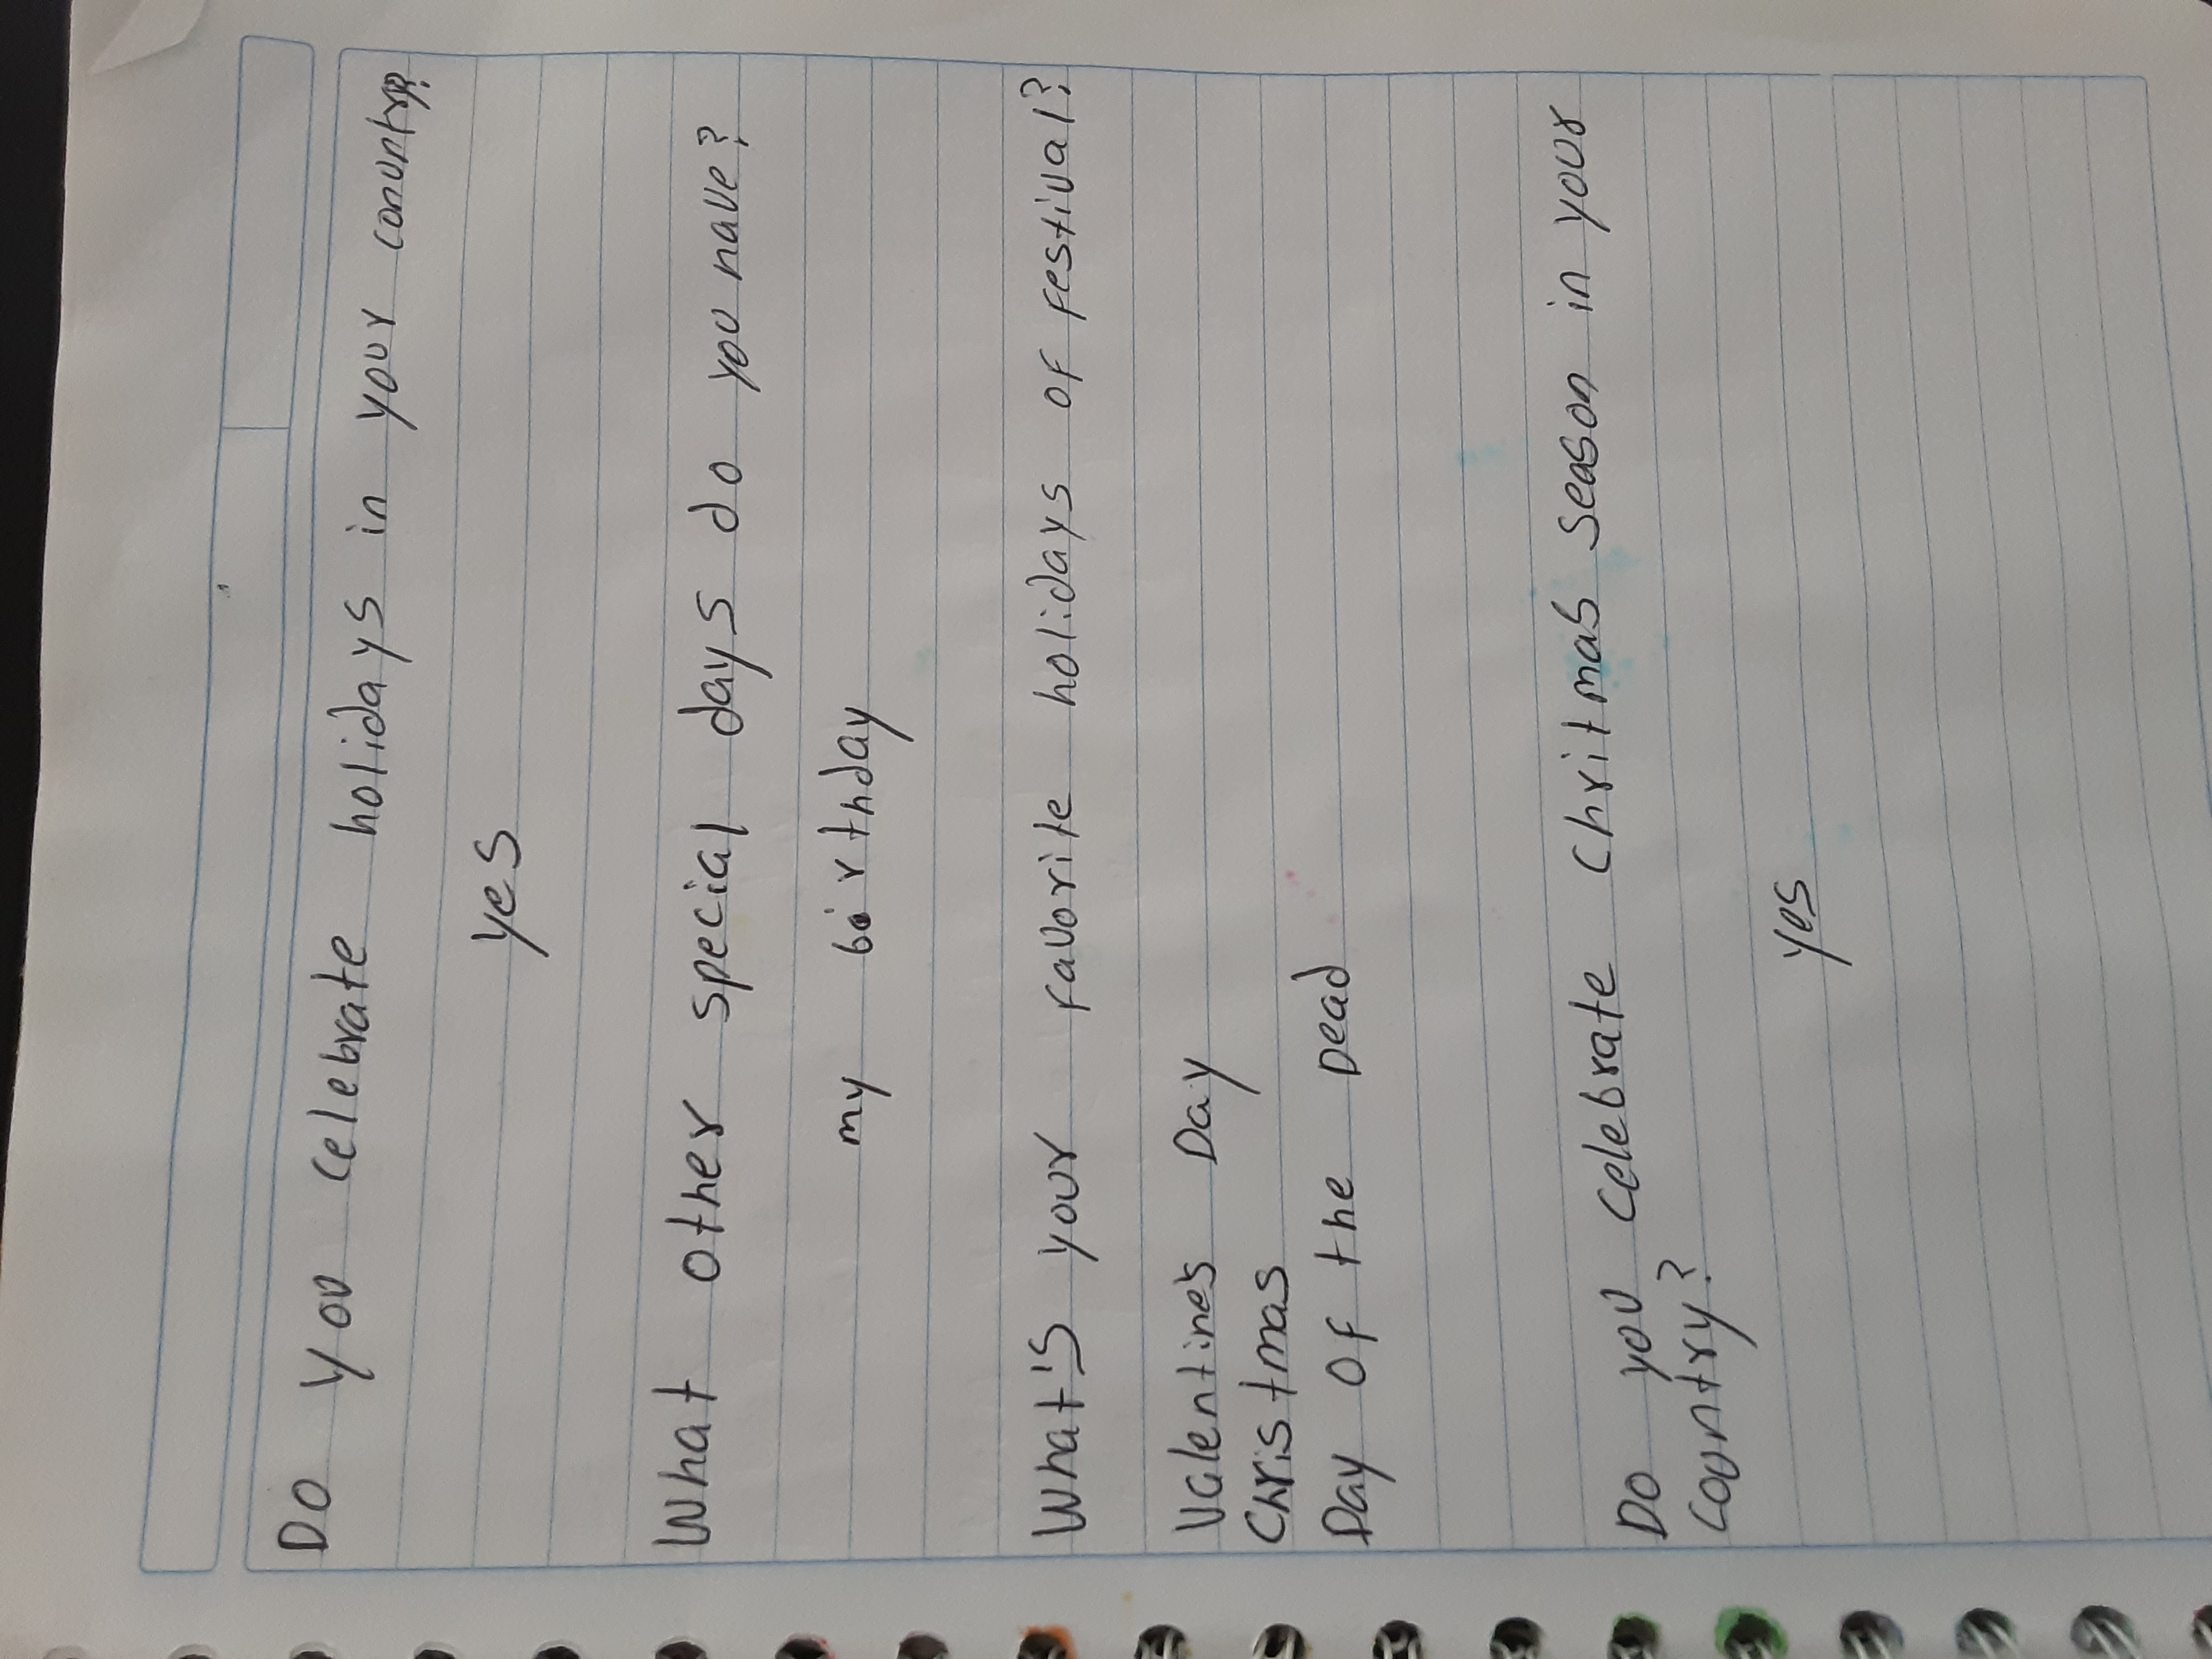 Do you celebrate holidays in your country?
yes
What other special days do you have?
my birthday
What's your favorite holidays of festival?
Valentine's Day
Christmas
Day of the Dead
Do you celebrate Chritmas season in your
country?
yes